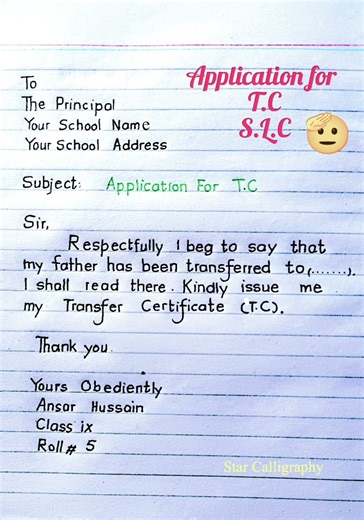 Application for
T.C
S.L.C
To
The Principal
Your School Name
Your School Address
Subject: Application For T.C
Sir,
Respectfully I beg to say that
my father has been transferred to(.......).
I shall read there. Kindly issue me
my Transfer Certificate (T.C).
Thank you
Yours Obediently
Ansar Hussain
Class ix
Roll# 5
Star Calligraphy